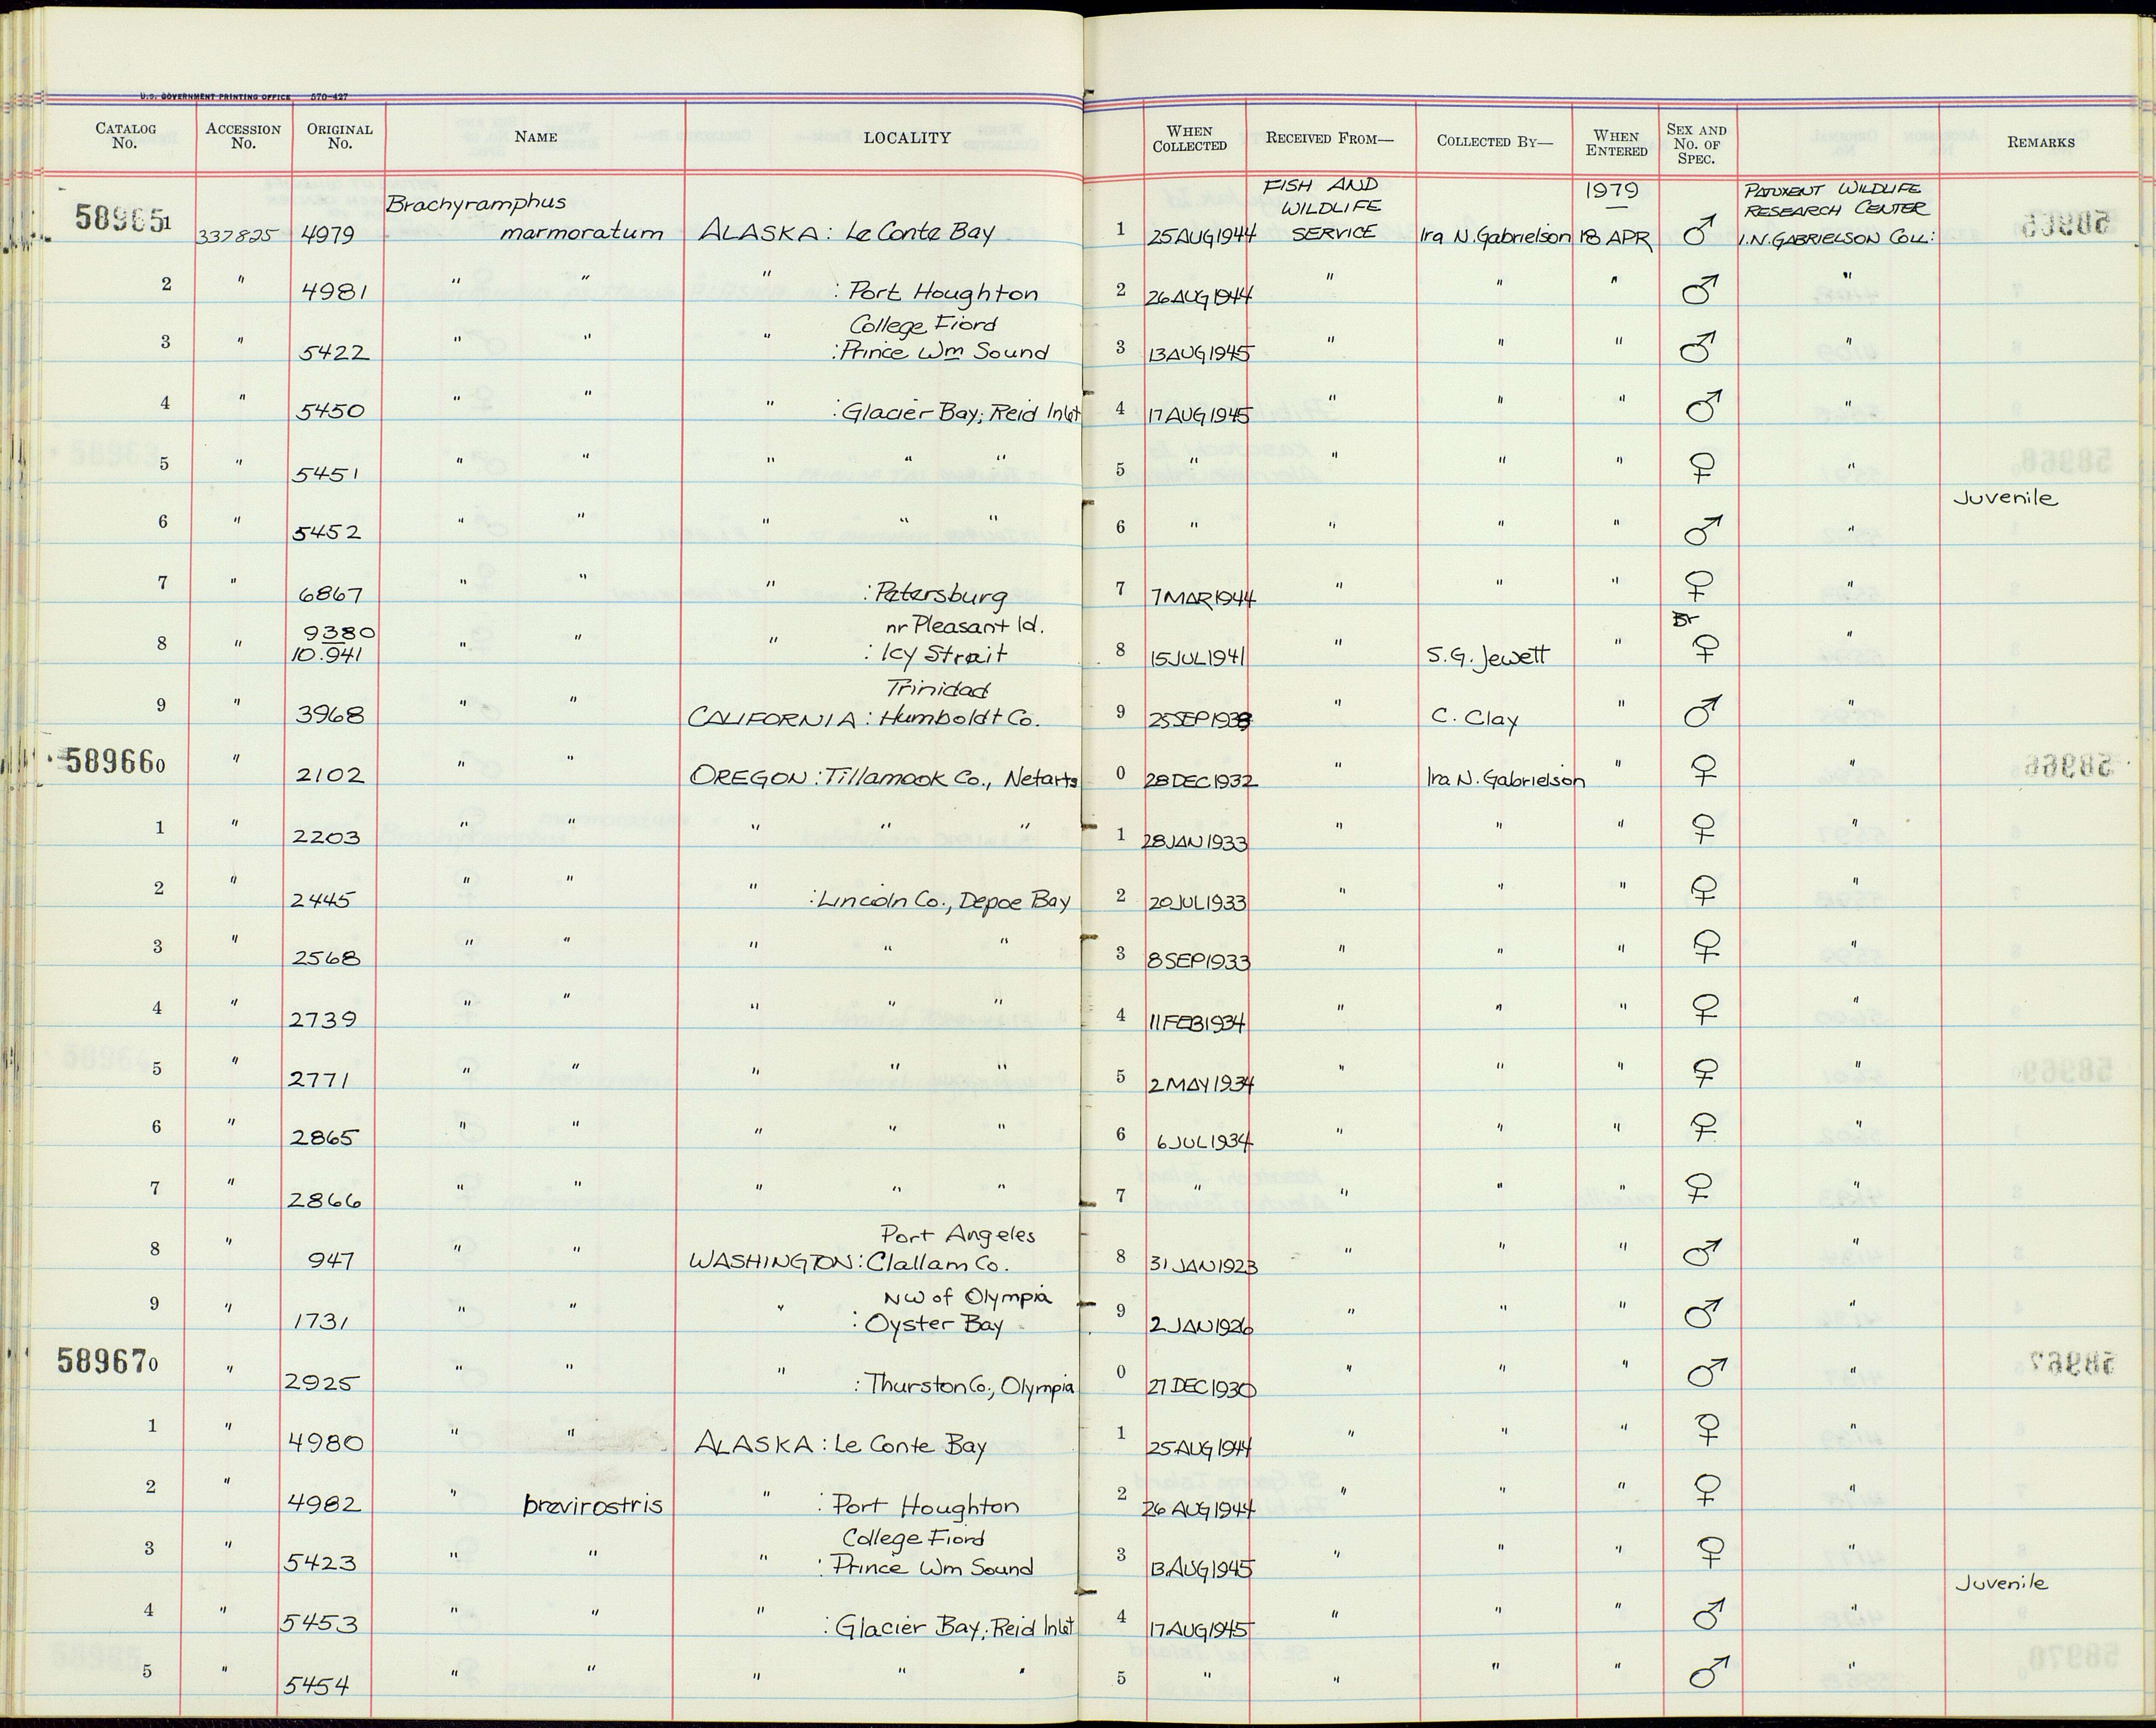 U.S. GOVERNMENT PRINTING OFFICE 570-427
CATALOG No. ACCESSION No. ORIGINAL No. NAME LOCALITY WHEN COLLECTED RECEIVED FROM— COLLECTED BY— WHEN ENTERED SEX AND No. OF SPEC. REMARKS
FISH AND 1979 PATUXENT WILDLIFE
Brachyramphus WILDLIFE RESEARCH CENTER
589651 337825 4979 marmoratum ALASKA: Le Conte Bay 1 25 AUG 1944 SERVICE Ira N. Gabrielson 18 APR ♂ I.N. GABRIELSON COLL:
2 " 4981 " " " : Port Houghton 2 26 AUG 1944 " " " ♂ "
College Fiord
3 " 5422 " " " : Prince Wm Sound 3 13 AUG 1945 " " " ♂ "
4 " 5450 " " " : Glacier Bay; Reid Inlet 4 17 AUG 1945 " " " ♂ "
5 " 5451 " " " " " 5 " " " " ♀ "
Juvenile
6 " 5452 " " " " " 6 " " " " ♂ "
7 " 6867 " " " : Petersburg 7 7 MAR 1944 " " " ♀ "
9380 nr Pleasant Id. Br
8 " 10.941 " " " : Icy Strait 8 15 JUL 1941 " S.G. Jewett " ♀ "
Trinidad
9 " 3968 " " CALIFORNIA: Humboldt Co. 9 25 SEP 1938 " C. Clay " ♂ "
589660 " 2102 " " OREGON: Tillamook Co., Netarts 0 28 DEC 1932 " Ira N. Gabrielson " ♀ "
1 " 2203 " " " " " 1 28 JAN 1933 " " " ♀ "
2 " 2445 " " " : Lincoln Co., Depoe Bay 2 20 JUL 1933 " " " ♀ "
3 " 2568 " " " " " 3 8 SEP 1933 " " " ♀ "
4 " 2739 " " " " " 4 11 FEB 1934 " " " ♀ "
5 " 2771 " " " " " 5 2 MAY 1934 " " " ♀ "
6 " 2865 " " " " " 6 6 JUL 1934 " " " ♀ "
7 " 2866 " " " " " 7 " " " " ♀ "
Port Angeles
8 " 947 " " WASHINGTON: Clallam Co. 8 31 JAN 1923 " " " ♂ "
NW of Olympia
9 " 1731 " " " : Oyster Bay 9 2 JAN 1926 " " " ♂ "
589670 " 2925 " " " : Thurston Co., Olympia 0 27 DEC 1930 " " " ♂ "
1 " 4980 " " ALASKA: Le Conte Bay 1 25 AUG 1944 " " " ♀ "
2 " 4982 " brevirostris " : Port Houghton 2 26 AUG 1944 " " " ♀ "
College Fiord
3 " 5423 " " " : Prince Wm Sound 3 13 AUG 1945 " " " ♀ "
Juvenile
4 " 5453 " " " : Glacier Bay; Reid Inlet 4 17 AUG 1945 " " " ♂ "
5 " 5454 " " " " " 5 " " " " ♂ "